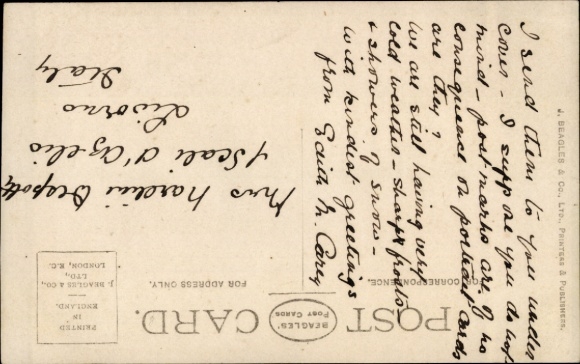 I send them to you under
cover - I suppose you do not
mind - post marks are of no
consequence on portrait cards
are they?
We are still having very
cold weather - sharp frosts
& showers of snow -
with kindest greetings
from Edith M. Carey
Mrs Nardini
4 Scali d'Azeglio
Livorno
Italy
POST CARD.
BEAGLES'
POST CARDS
FOR CORRESPONDENCE.
FOR ADDRESS ONLY.
PRINTED
IN
ENGLAND.
J. BEAGLES & CO.,
LTD.,
LONDON, E.C.
J. BEAGLES & CO., LTD., PRINTERS & PUBLISHERS.